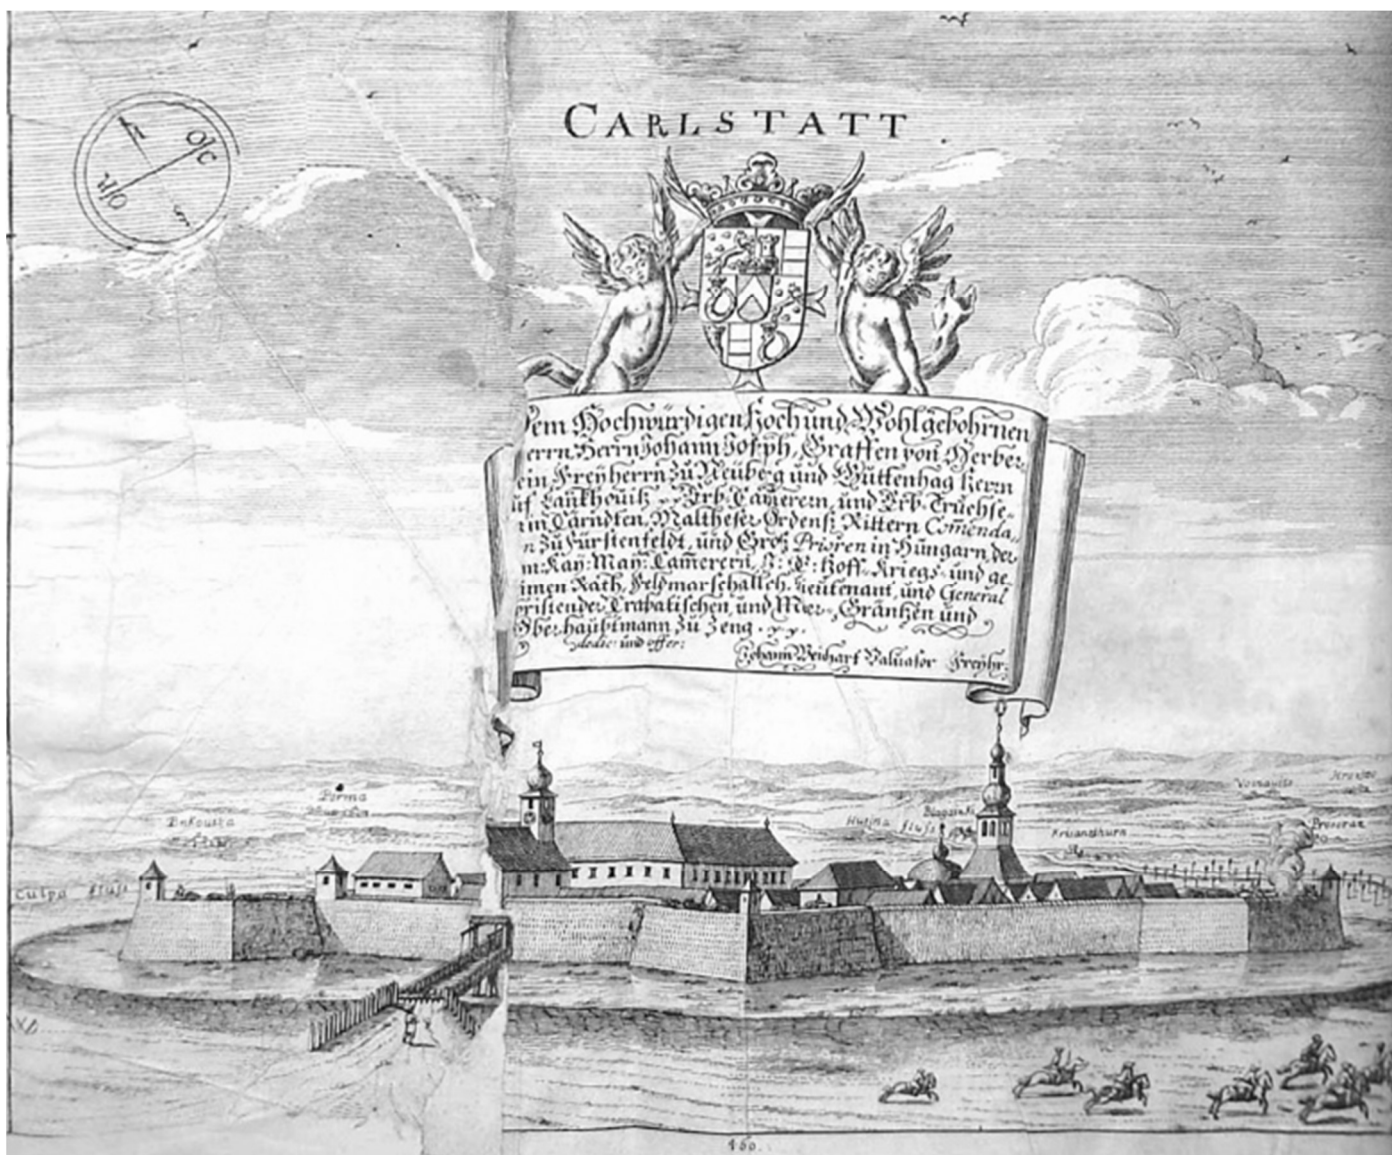 CARLSTATT
N
O
W
S
em Hochwürdigen Hoch und Wohlgebohrnen
errn Herrn Johann Joseph, Graffen von Herber
ein Freyherrn zu Neuberg und Guttenhag Herrn
uf Lankhouitz Erb Camerern, und Erb Truchse
in Cärndten, Maltheser Ordens Rittern Comenda
n zu Fürstenfeldt, und Groß Prioren in Hungarn, der
m Kay: May: Camerern, Hoff Kriegs und ge
imen Rath, Feldmarschallch. Leutenant, und General
der Crabatischen, und Mer Gränhen und
Oberhaubtmann zu Zeng.
dedic: und offer:
Johann Weichart Valuasor Freyhr:
Culpa fluss
fluss
460.